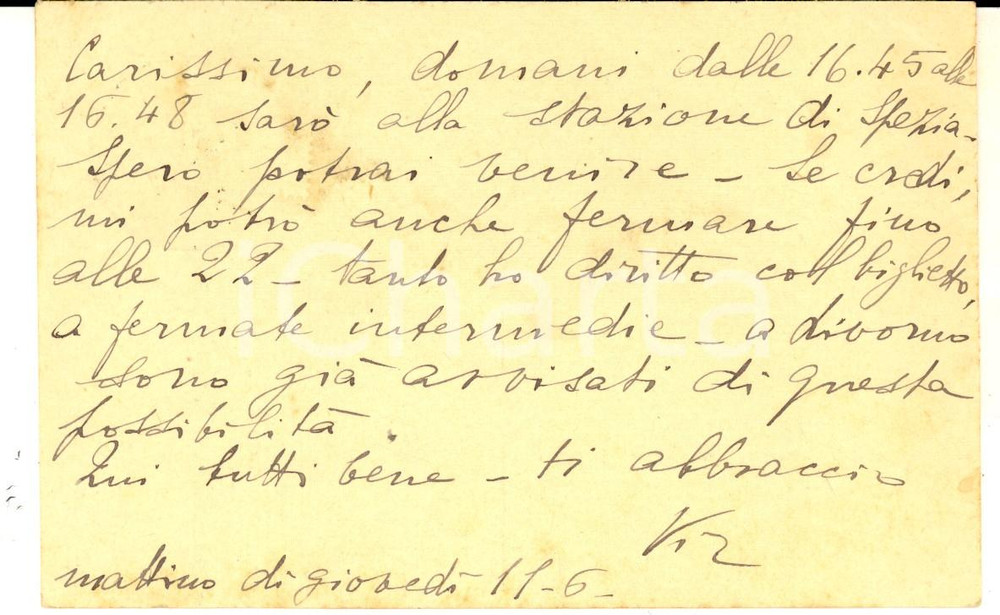 Carissimo, domani dalle 16.45 alle
16.48 sarò alla stazione di Spezia -
Spero potrai venire - Se credi,
mi potrò anche fermare fino
alle 22 - tanto ho diritto col biglietto,
a fermate intermedie - a Livorno
sono già avvisati di questa
possibilità
Qui tutti bene - ti abbraccio
mattino di giovedì 11-6-
iCharta